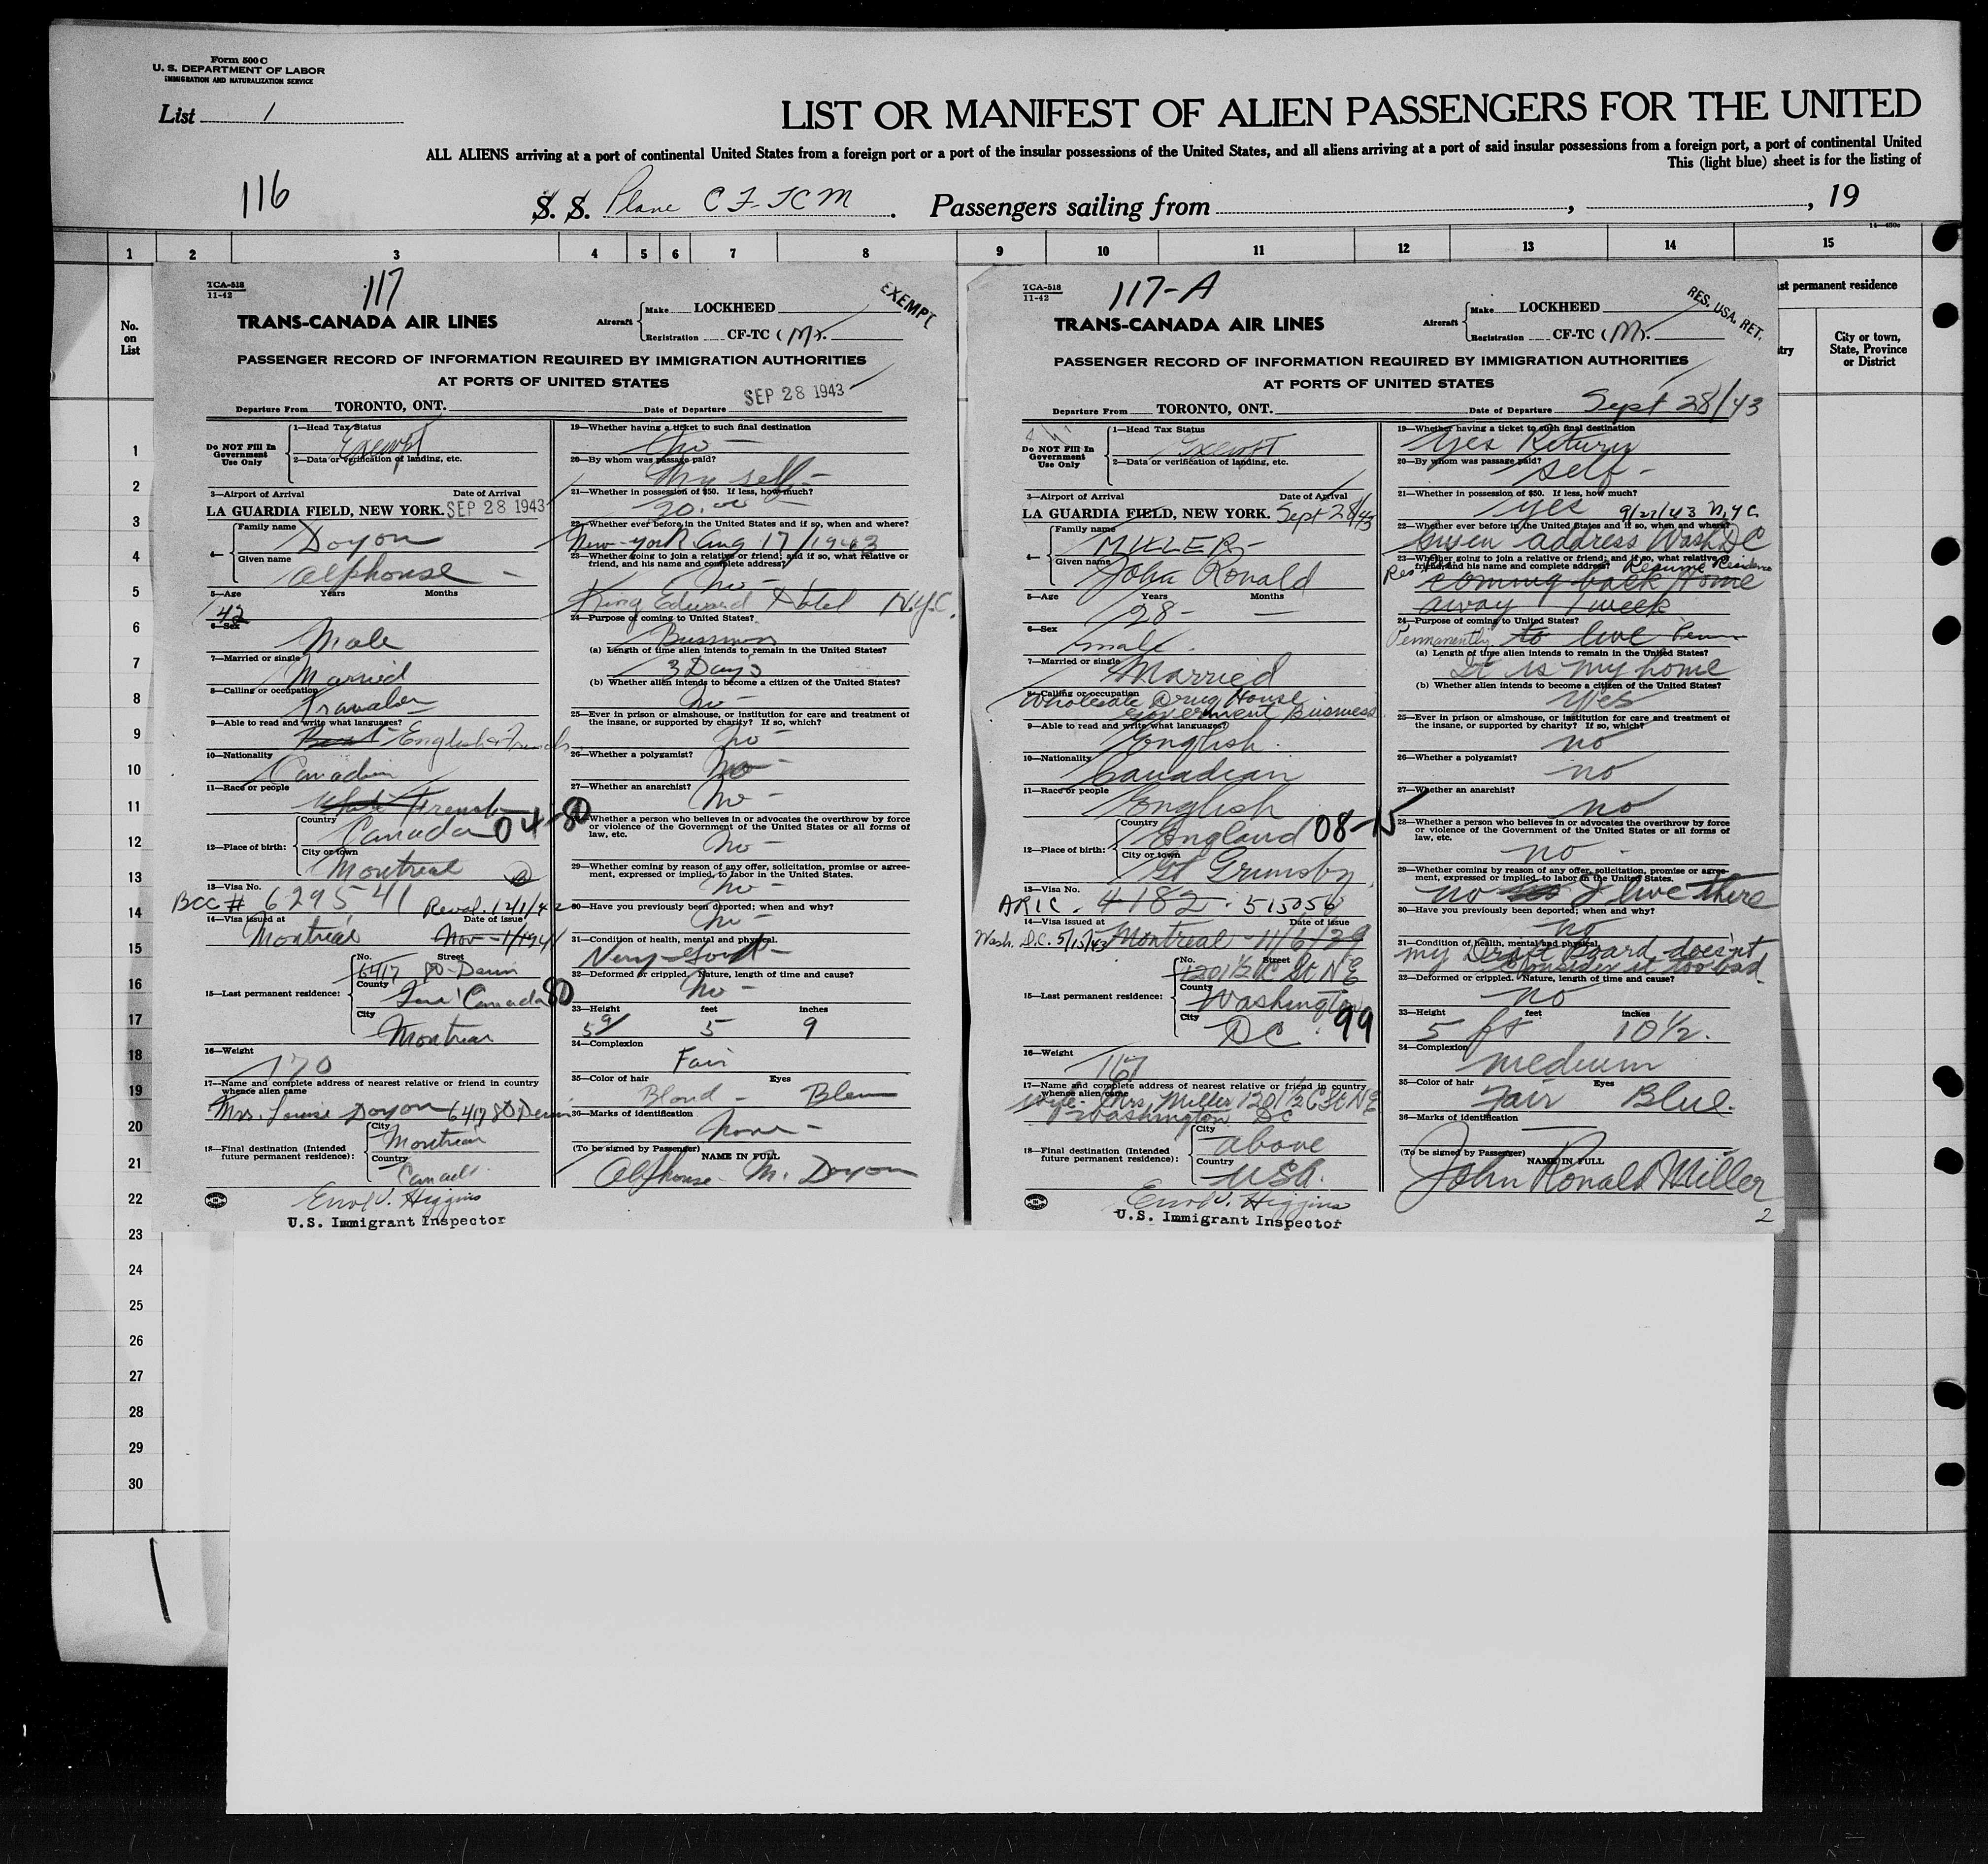 Form 500 C
U. S. DEPARTMENT OF LABOR
IMMIGRATION AND NATURALIZATION SERVICE
List 1
LIST OR MANIFEST OF ALIEN PASSENGERS FOR THE UNITED
ALL ALIENS arriving at a port of continental United States from a foreign port or a port of the insular possessions of the United States, and all aliens arriving at a port of said insular possessions from a foreign port, a port of continental United
This (light blue) sheet is for the listing of
116
S. S. Plane CF-TCM. Passengers sailing from , , 19
1 2 3 4 5 6 7 8 9 10 11 12 13 14 15
No.
on
List
st permanent residence
try
City or town,
State, Province
or District
1
2
3
4
5
6
7
8
9
10
11
12
13
14
15
16
17
18
19
20
21
22
23
24
25
26
27
28
29
30
TCA-518
11-42
117
EXEMPT
TRANS-CANADA AIR LINES
Aircraft Make LOCKHEED
Registration CF-TC (M).
PASSENGER RECORD OF INFORMATION REQUIRED BY IMMIGRATION AUTHORITIES
AT PORTS OF UNITED STATES
SEP 28 1943
Departure From TORONTO, ONT. Date of Departure
Do NOT Fill In
Government
Use Only
1—Head Tax Status
Exempt
2—Data or verification of landing, etc.
3—Airport of Arrival Date of Arrival
LA GUARDIA FIELD, NEW YORK. SEP 28 1943
4— Family name
Doyon
Given name
Alphonse -
5—Age Years Months
42
6—Sex
Male
7—Married or single
Married
8—Calling or occupation
9—Able to read and write what languages?
English & French
10—Nationality
Canadien
11—Race or people
French
12—Place of birth: Country
Canada 04-80
City or town
Montreal
13—Visa No.
BCC # 629541 Reval. 12/1/42
14—Visa issued at Date of issue
Montreal Nov-1/1941
15—Last permanent residence: No. Street
6417
County
Canada 80
City
Montreal
16—Weight
170
17—Name and complete address of nearest relative or friend in country
whence alien came
Mrs. Louise Doyon 6417
18—Final destination (Intended
future permanent residence): City
Montreal
Country
Canada
Errol J. Higgins
U.S. Immigrant Inspector
19—Whether having a ticket to such final destination
no -
20—By whom was passage paid?
My self -
21—Whether in possession of $50. If less, how much?
30.00
22—Whether ever before in the United States and if so, when and where?
New-York Aug 17/1943
23—Whether going to join a relative or friend; and if so, what relative or
friend, and his name and complete address?
no -
King Edward Hotel N.Y.C.
24—Purpose of coming to United States?
(a) Length of time alien intends to remain in the United States?
3 Days
(b) Whether alien intends to become a citizen of the United States?
no -
25—Ever in prison or almshouse, or institution for care and treatment of
the insane, or supported by charity? If so, which?
no -
26—Whether a polygamist?
no -
27—Whether an anarchist?
no -
28—Whether a person who believes in or advocates the overthrow by force
or violence of the Government of the United States or all forms of
law, etc.
no -
29—Whether coming by reason of any offer, solicitation, promise or agree-
ment, expressed or implied, to labor in the United States.
no -
30—Have you previously been deported; when and why?
no -
31—Condition of health, mental and physical.
Very-Good -
32—Deformed or crippled. Nature, length of time and cause?
no -
33—Height feet inches
5 9
34—Complexion
Fair
35—Color of hair Eyes
Blond -
36—Marks of identification
None -
(To be signed by Passenger) NAME IN FULL
Alphonse M. Doyon
TCA-518
11-42
117-A
RES. USA. RET.
TRANS-CANADA AIR LINES
Aircraft Make LOCKHEED
Registration CF-TC (M).
PASSENGER RECORD OF INFORMATION REQUIRED BY IMMIGRATION AUTHORITIES
AT PORTS OF UNITED STATES
Departure From TORONTO, ONT. Date of Departure Sept 28/43
Do NOT Fill In
Government
Use Only
1—Head Tax Status
Exempt
2—Data or verification of landing, etc.
3—Airport of Arrival Date of Arrival
LA GUARDIA FIELD, NEW YORK. Sept 28/43
4— Family name
MILLER -
Given name
John Ronald
5—Age Years Months
28 - —
6—Sex
male.
7—Married or single
Married
8—Calling or occupation
Wholesale Drug House
Government Business
9—Able to read and write what languages?
English.
10—Nationality
Canadian
11—Race or people
English
12—Place of birth: Country
England 08-15
City or town
Gt Grimsby
13—Visa No.
ARIC. 4182. 515056
14—Visa issued at Date of issue
Wash. D.C. 5/15/43 Montreal - 11/6/39
15—Last permanent residence: No. Street
1201 1/2 C St NE
County
Washington
City
DC. 99
16—Weight
167
17—Name and complete address of nearest relative or friend in country
whence alien came
wife - Mrs. Miller 1201 1/2 C St NE
Washington DC
18—Final destination (Intended
future permanent residence): City
above
Country
USA.
Errol J. Higgins
U.S. Immigrant Inspector
19—Whether having a ticket to such final destination
yes Return
20—By whom was passage paid?
self -
21—Whether in possession of $50. If less, how much?
yes 9/27/43 N.Y.C.
22—Whether ever before in the United States and if so, when and where?
Given address Wash DC
23—Whether going to join a relative or friend; and if so, what relative or
friend, and his name and complete address? Resume Residence
Res. coming back home
away 1 week
24—Purpose of coming to United States?
Permanently to live
(a) Length of time alien intends to remain in the United States?
It is my home
(b) Whether alien intends to become a citizen of the United States?
Yes
25—Ever in prison or almshouse, or institution for care and treatment of
the insane, or supported by charity? If so, which?
no
26—Whether a polygamist?
no
27—Whether an anarchist?
no
28—Whether a person who believes in or advocates the overthrow by force
or violence of the Government of the United States or all forms of
law, etc.
no -
29—Whether coming by reason of any offer, solicitation, promise or agree-
ment, expressed or implied, to labor in the United States.
no I live there
30—Have you previously been deported; when and why?
no
31—Condition of health, mental and physical.
my Draft Board doesn't
consider it too bad
32—Deformed or crippled. Nature, length of time and cause?
no
33—Height feet inches
5 ft 10 1/2.
34—Complexion
medium
35—Color of hair Eyes
Fair Blue.
36—Marks of identification
(To be signed by Passenger) NAME IN FULL
John Ronald Miller
2
1